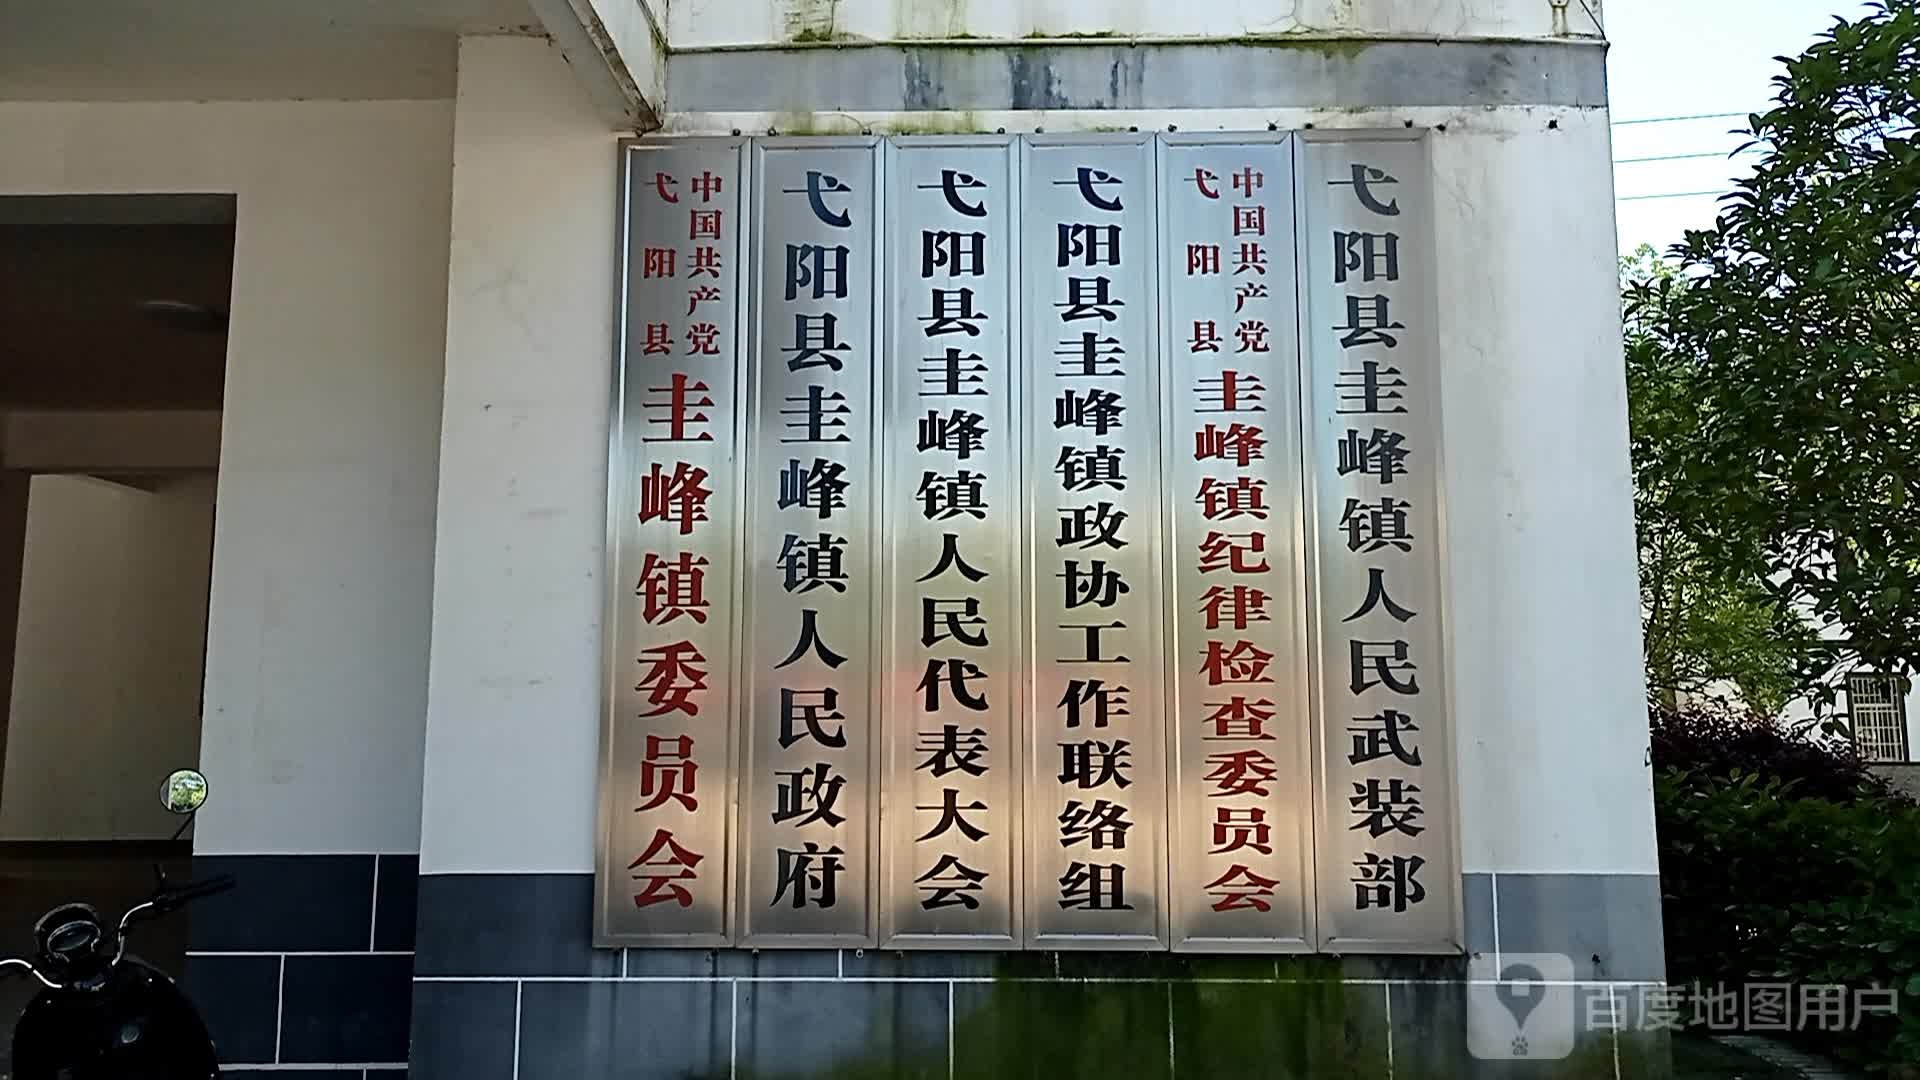 中国共产党
弋阳县
圭峰镇委员会
弋阳县圭峰镇人民政府
弋阳县圭峰镇人民代表大会
弋阳县圭峰镇政协工作联络组
中国共产党
弋阳县
圭峰镇纪律检查委员会
弋阳县圭峰镇人民武装部
百度地图用户